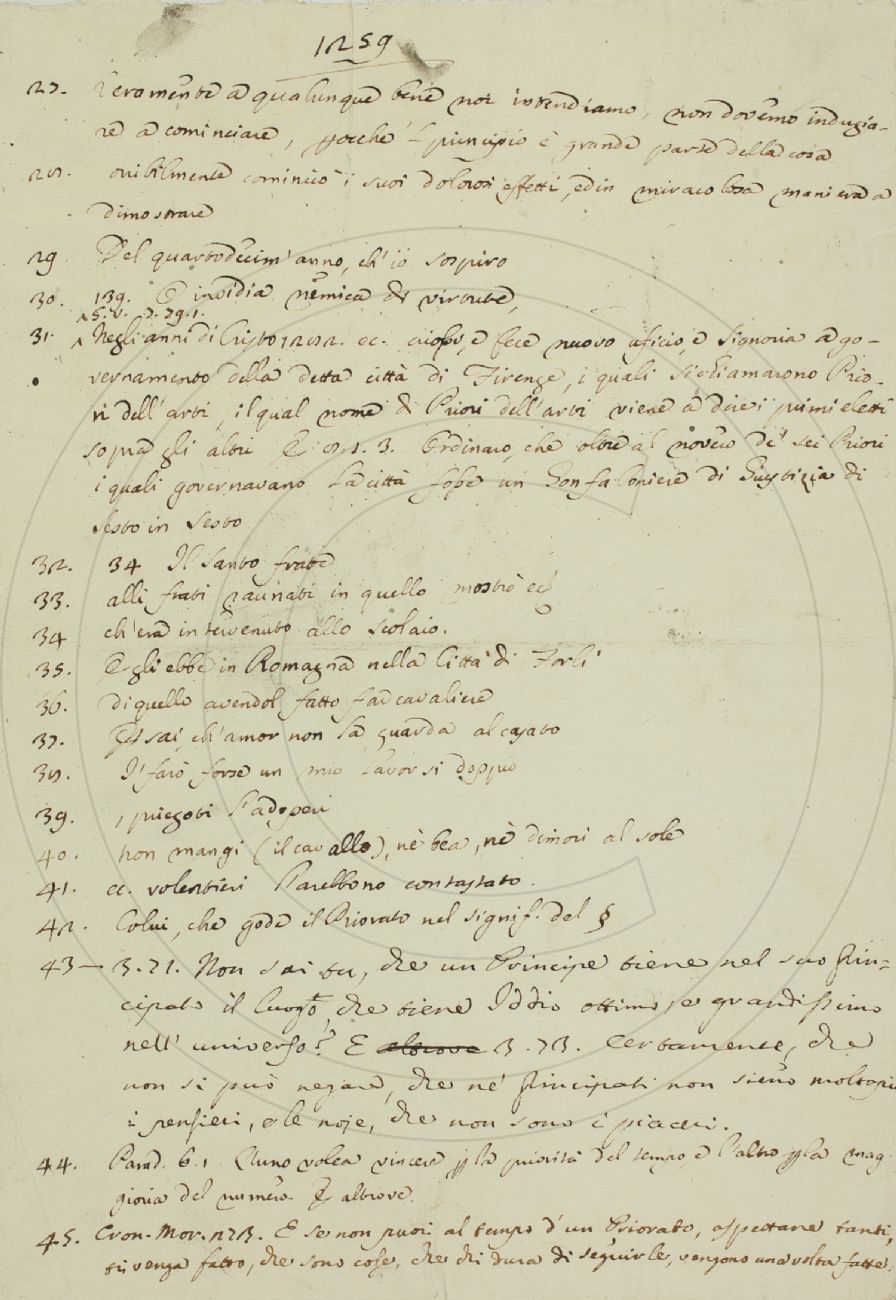 1259
27. Veramente a qualunque bene noi intendiamo, non dovemo indugia-
re a cominciare, perocchè 'l principio è grande parte della cosa
28. orribilmente cominciò i suoi dolorosi effetti, ed in miracolosa maniera a
dimostrare
29 Del quartodecim' anno, ch' io sospiro
30. 139. E invidia nemica di virtute,
S.V. 7. 79. 1.
31. Negli anni di Cristo 1282. ec. e fece nuovo uficio, e Signoria a go-
vernamento della detta città di Firenze, i quali si chiamarono Prio-
ri dell' arti, il qual nome di Priori dell' arti viene a dire i primi eletti
sopra gli altri E 8. 1. 3. Ordinaro, che oltre al novero de' sei Priori
i quali governavano la città fosse un Gonfaloniere di Giustizia di
sesto in sesto
32. 34 Il santo frate
33. alli frati raunati in quello mostrò ec
34 ch' era intervenuto allo scolaio.
35. Egli ebbe in Romagna nella Città di Forlì
36. di quello avendol fatto far cavaliere
37. E sai, ch' amor non la guarda al casato
38. I' farò forse un mio lavor sì doppio
39. , priegoti l'adoperi
40. non mangi (il cavallo), nè bea, nè dimori al sole
41. ec. volentieri l'arebbono contastato.
42. Colui, che gode il Priorato nel signif. del §
43 — 3. 71. Non sai tu, che un Principe tiene nel suo Prin-
cipato il luogo, che tiene Iddio ottimo, e grandissimo
nell' universo? E altrove 3. 73. Certamente, che
non si può negare, che ne' Principati non sieno molto più
i pensieri, e le noje, che non sono i piaceri.
44. Parad. 6. 1 L'uno volea vincere per la priorità del tempo, e l'altro per la mag
gioria del numero. E altrove.
45. Cron. Mor. 273. E se non puoi al tempo d' un Priorato, aspettane tanti,
ti venga fatto, che sono cose, che chi dura di seguirle, vengono una volta fatte.